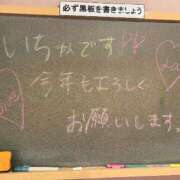 必ず黒板を書きましょう
いちかです♡♡
今年もよろしく
お願いします。
Love